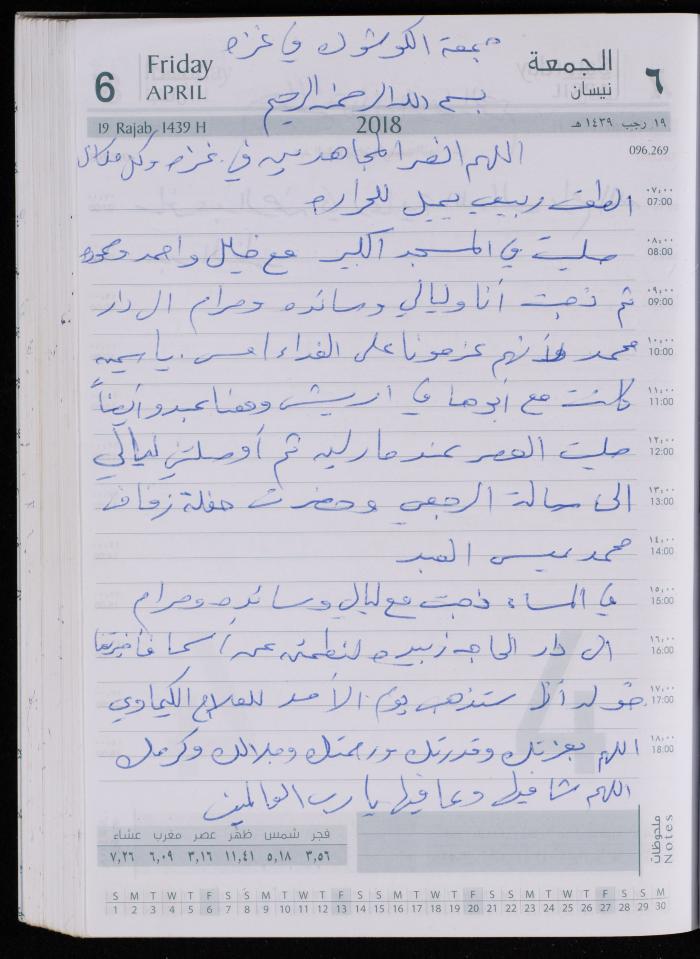 جمعة الكوشوك في غزة
6
Friday
APRIL
الجمعة
نيسان
٦
بسم الله الرحمن الرحيم
19 Rajab 1439 H
2018
١٩ رجب ١٤٣٩ هـ
096.269
اللهم انصر المجاهدين في غزة وكل مكان
٠٧,٠٠
07:00
الطقس ربيعي يميل للحرارة
٠٨,٠٠
08:00
صليت في المسجد الكبير مع خليل واحمد ومحمود
٠٩,٠٠
09:00
ثم ذهبت أنا وليالي وسائده ومرام الى دار
١٠,٠٠
10:00
محمد لأنهم عزمونا على الغداء امس. ياسمين
١١,٠٠
11:00
كانت مع أبوها في وهنا عبدو أيضاً
١٢,٠٠
12:00
صليت العصر عند ثم أوصلتني ليالي
١٣,٠٠
13:00
الى صالة وحضرت حفلة زفاف
١٤,٠٠
14:00
محمد عيسى العبد
١٥,٠٠
15:00
في المساء ذهبت مع ليالي وسائده ومرام
١٦,٠٠
16:00
الى دار الحاجه زبيده لنطمئن عن
١٧,٠٠
17:00
خوله أنها ستذهب يوم الأحد للعلاج الكيماوي
١٨,٠٠
18:00
اللهم بعزتك وقدرتك ورحمتك وجلالك وكرمك
اللهم شافيها وعافيها يا رب العالمين
فجر شمس ظهر عصر مغرب عشاء
٣,٥٦ ٥,١٨ ١١,٤١ ٣,١٦ ٦,٠٩ ٧,٢٦
ملحوظات
Notes
S M T W T F S S M T W T F S S M T W T F S S M T W T F S S M
1 2 3 4 5 6 7 8 9 10 11 12 13 14 15 16 17 18 19 20 21 22 23 24 25 26 27 28 29 30